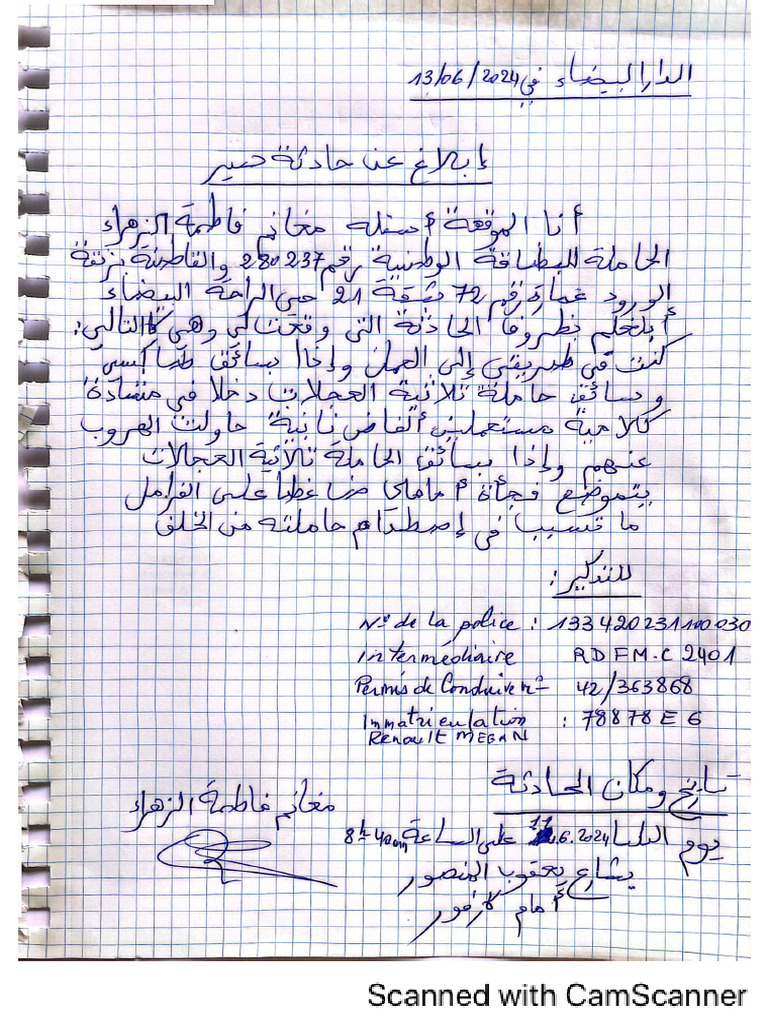 الدار البيضاء في 13/06/2024
إبلاغ عن حادثة سير
أنا الموقعة أسفله مغانم فاطمة الزهراء
الحاملة للبطاقة الوطنية رقم 280237 والقاطنة بزنقة
الورود عمارة رقم 72 شقة 21 حي الراحة البيضاء
أبلغكم بظروف الحادثة التي وقعت لي وهي كالتالي:
كنت في طريقي إلى العمل وإذا بسائق طاكسي
وسائق حاملة ثلاثية العجلات دخلا في مشادة
كلامية مستعملين ألفاض نابية حاولت الهروب
عنهم وإذا بسائق الحاملة ثلاثية العجالات
يتموضع فجأة أمامي ضاغطا على الفرامل
ما تسبب في إصطدام حاملته من الخلف
للتذكير:
N° de la police : 133420231100030
Intermédiaire RDFM.C 2401
Permis de Conduire n° 42/363868
Immatriculation : 78878 E 6
Renault MEGAN
تاريخ ومكان الحادثة
مغانم فاطمة الزهراء
يوم 11.6.2024 على الساعة 8h40mn
بشارع يعقوب المنصور
أمام كارفور
Scanned with CamScanner